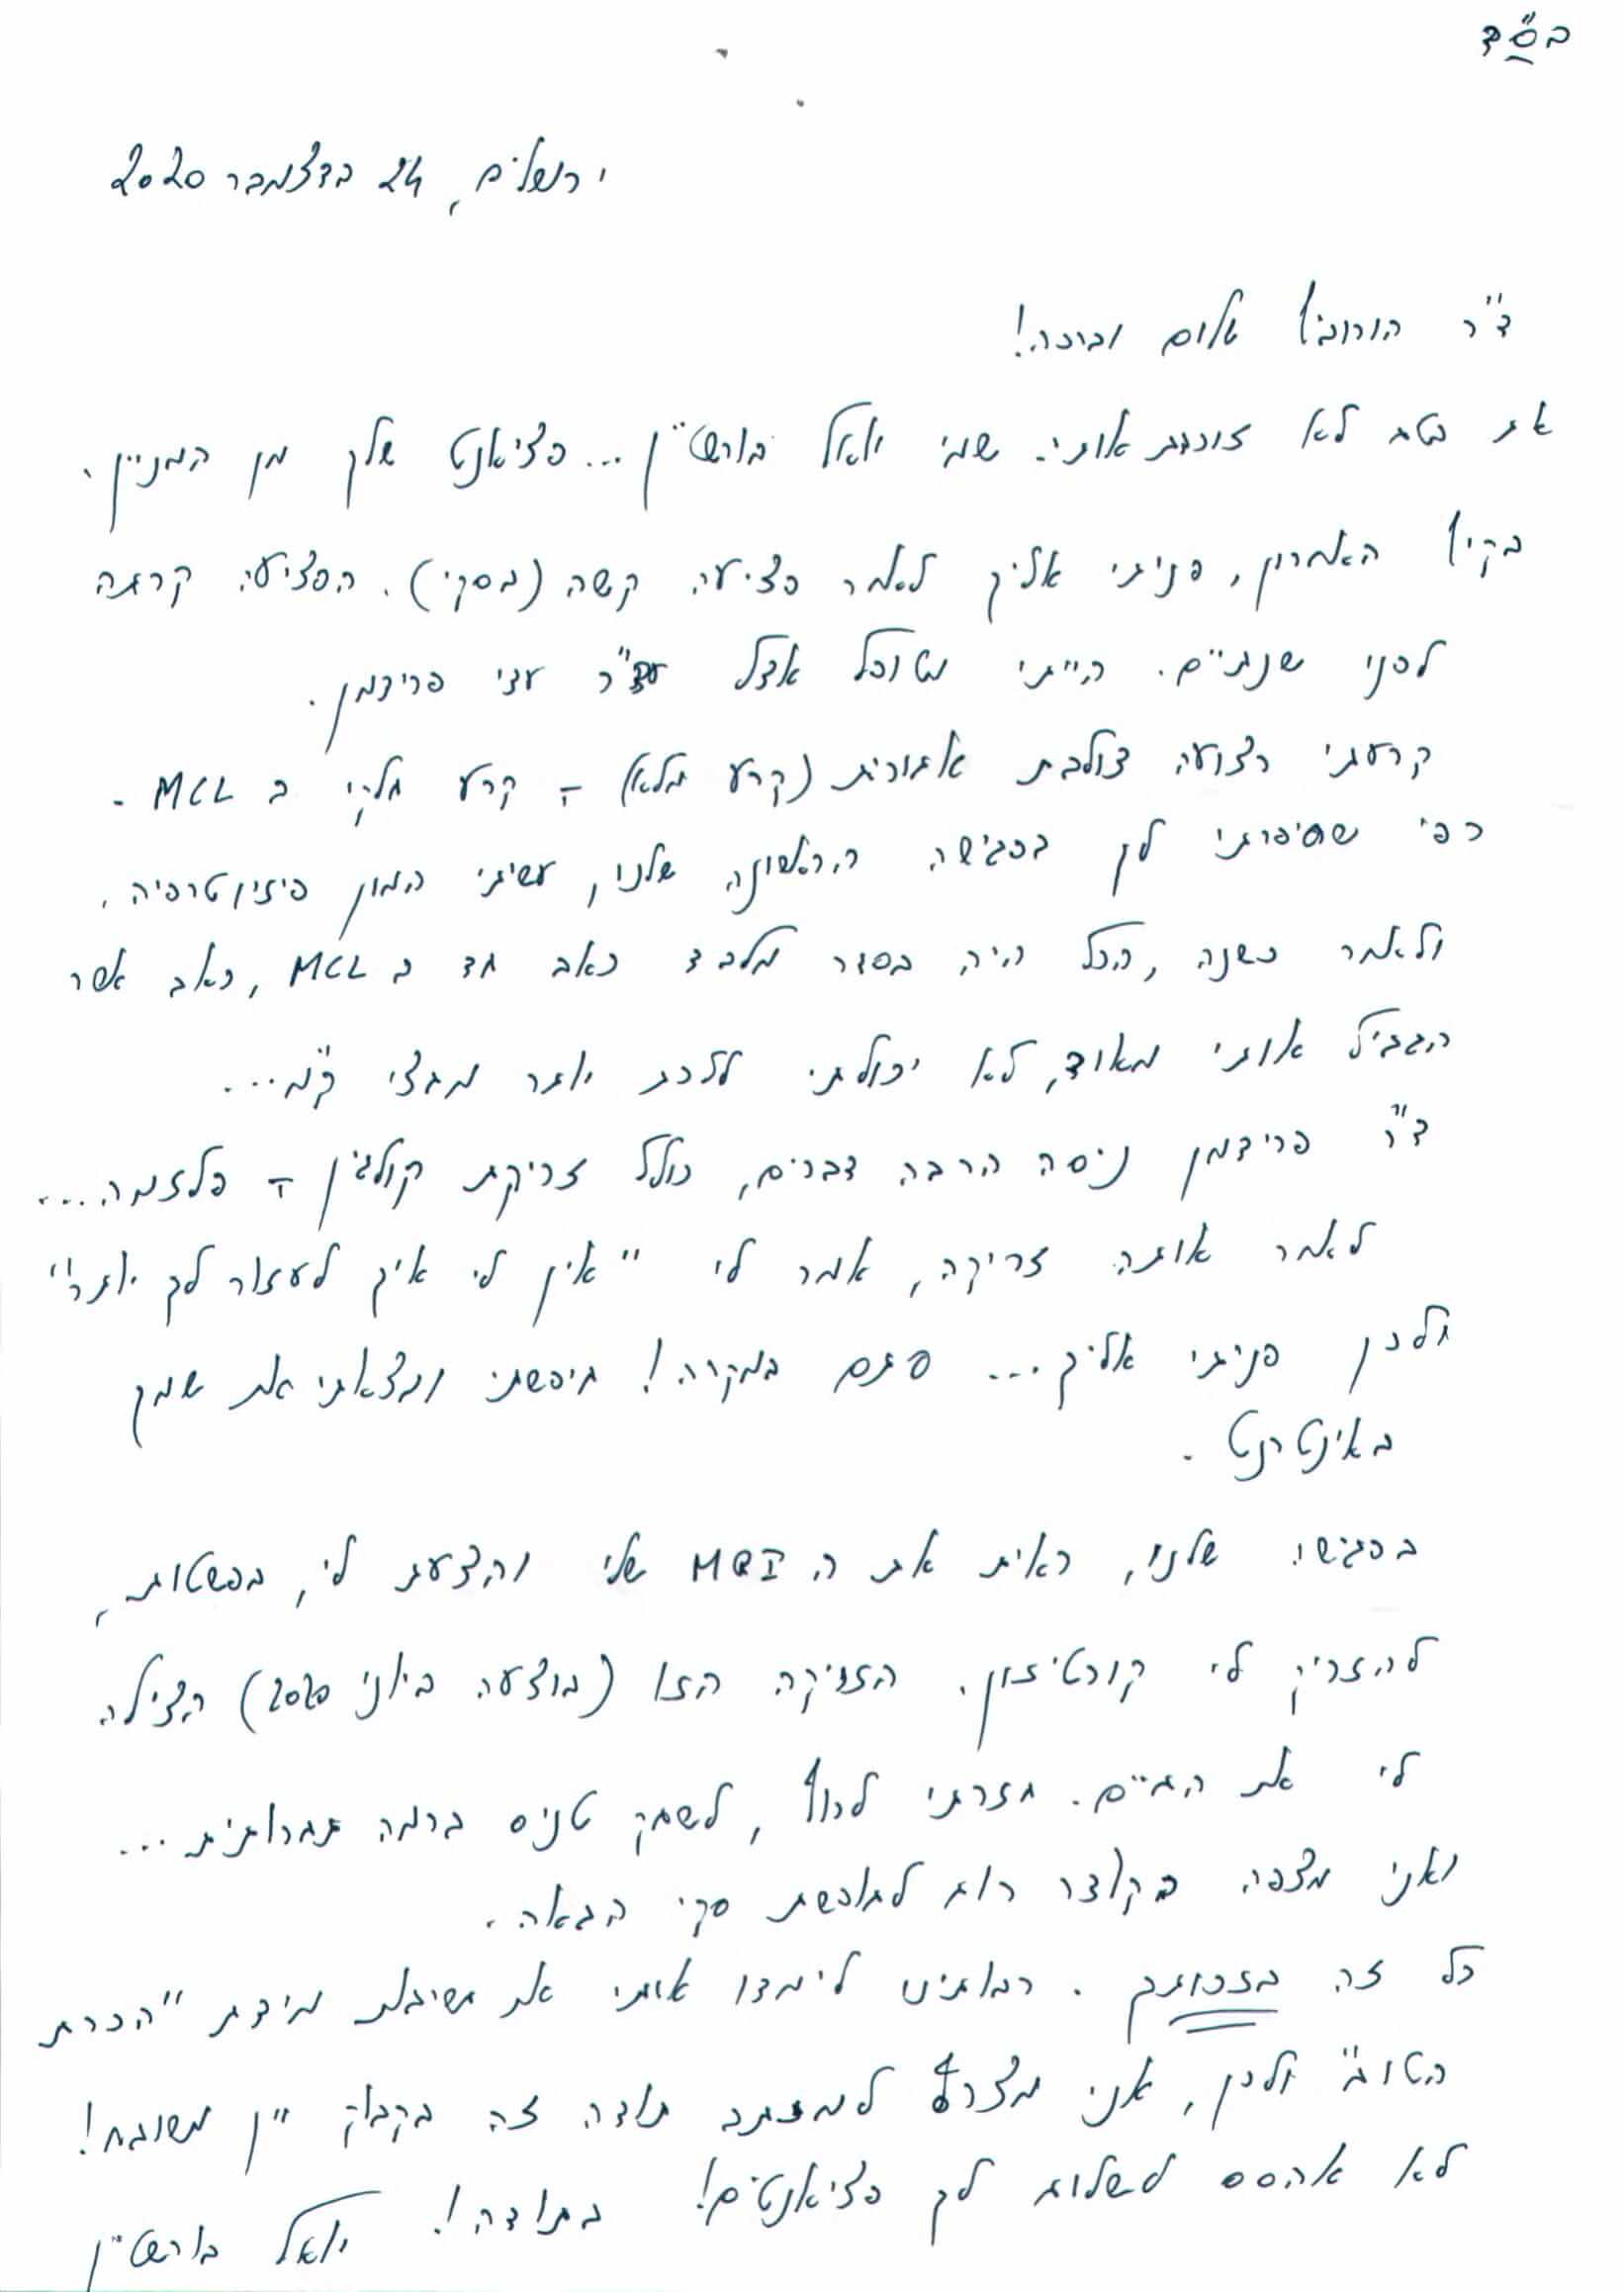 בס"ד
ירושלים, 24 בדצמבר 2020
ד"ר הורוביץ שלום וברכה!
את בטח לא זוכרת אותי. שמי יואל בורשטיין... פציאנט שלך מן המניין.
בקיץ האחרון, פניתי אליך לאחר פציעה קשה (בסקי). הפציעה קרתה
לפני שנתיים. הייתי מטופל אצל ד"ר עצי פרידמן.
קרעתי רצועה צולבת אחורית (קרע מלא) + קרע חלקי ב MCL.
כפי שסיפרתי לך בפגישה הראשונה שלנו, עשיתי המון פיזיוטרפיה,
ולאחר כשנה, הכל היה בסדר מלבד כאב חד ב MCL, כאב אשר
הגביל אותי מאוד, לא יכולתי ללכת יותר מחצי ק"מ...
ד"ר פרידמן ניסה הרבה דברים, כולל זריקת קולגין + פלזמה...
לאחר אותה זריקה, אמר לי "אין לי איך לעזור לך יותר"
ולכן פניתי אליך... סתם במקרה! חיפשתי ומצאתי את שמך
באינטרנט.
בפגישה שלנו, ראית את ה MRI שלי והצעת לי, בפשטות,
להזריק לי קורטיזון. הזריקה הזו (בוצעה ביולי 2020) הצילה
לי את החיים. חזרתי לרוץ, לשחק טניס ברמה תחרותית...
ואני מצפה בקוצר רוח לחופשת סקי הבאה.
כל זה בזכותך. רבותינו לימדו אותי את חשיבות מידת "הכרת
הטוב" ולכן, אני מצרף למכתב תודה זה בקבוק יין משובח!
לא אהסס לשלוח לך פציאנטים! בתודה! יואל בורשטיין